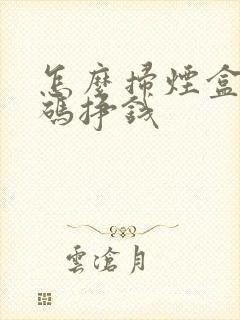 怎麼掃煙盒
碼掙錢
雲滄月